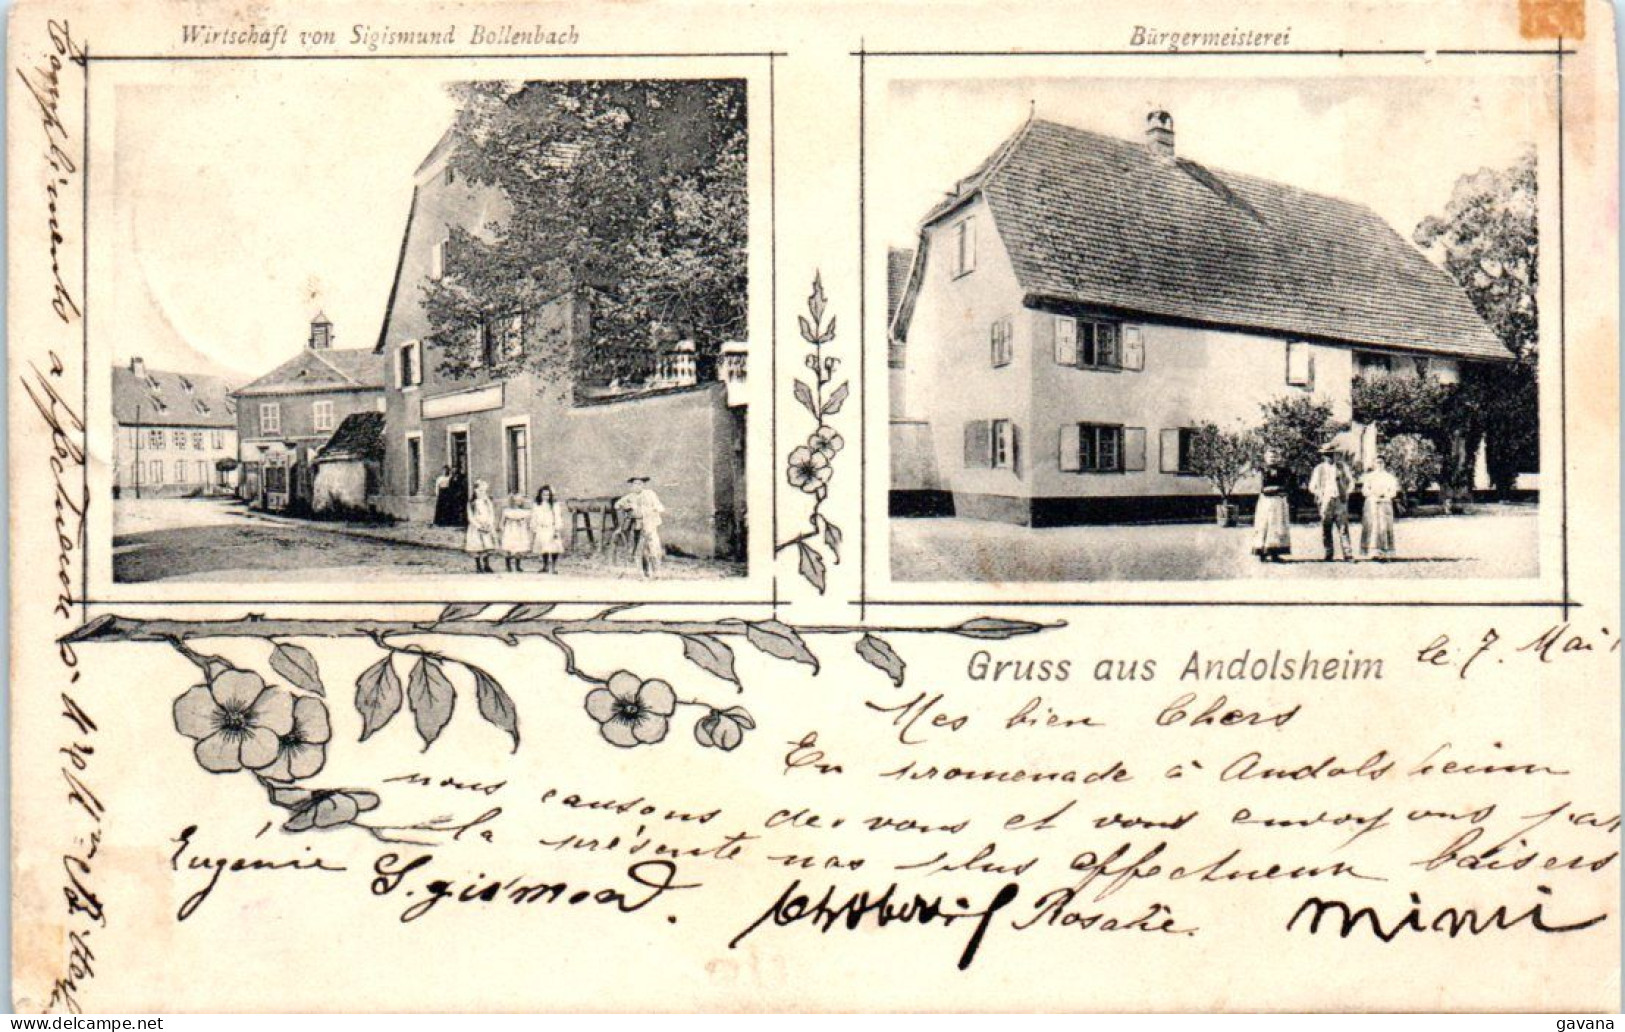 Wirtschaft von Sigismund Bollenbach
Bürgermeisterei
Gruss aus Andolsheim
le 7. Mai
Mes bien Chers
En promenade à Andolsheim
nous causons de vous et vous envoyons par
la présente nos plus affectueux baisers
Eugénie
Sigismond.
Rosalie.
mimi
Compliments affectueux
www.delcampe.net
gavana